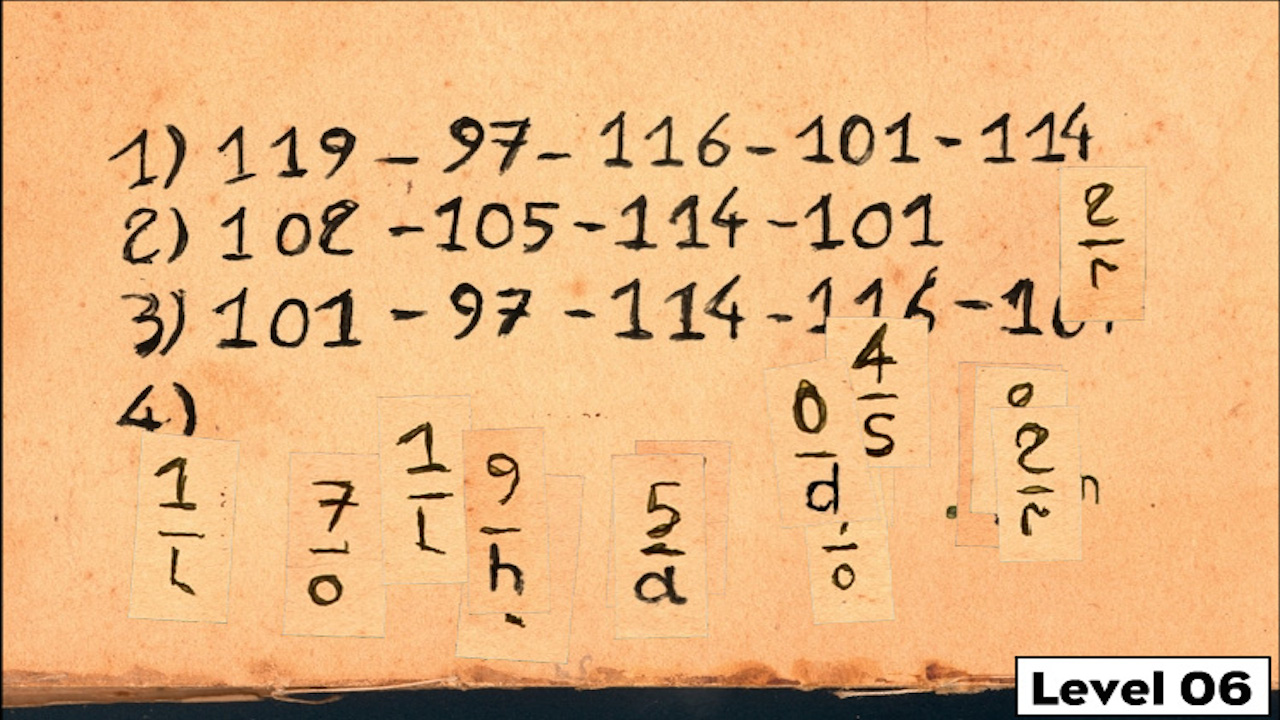 1) 119 - 97 - 116 - 101 - 114
2) 102 - 105 - 114 - 101
3) 101 - 97 - 114 -
4)
2
r
4
s
0
d
o
2
r
n
1
l
7
o
1
l
9
h
5
a
o
Level 06